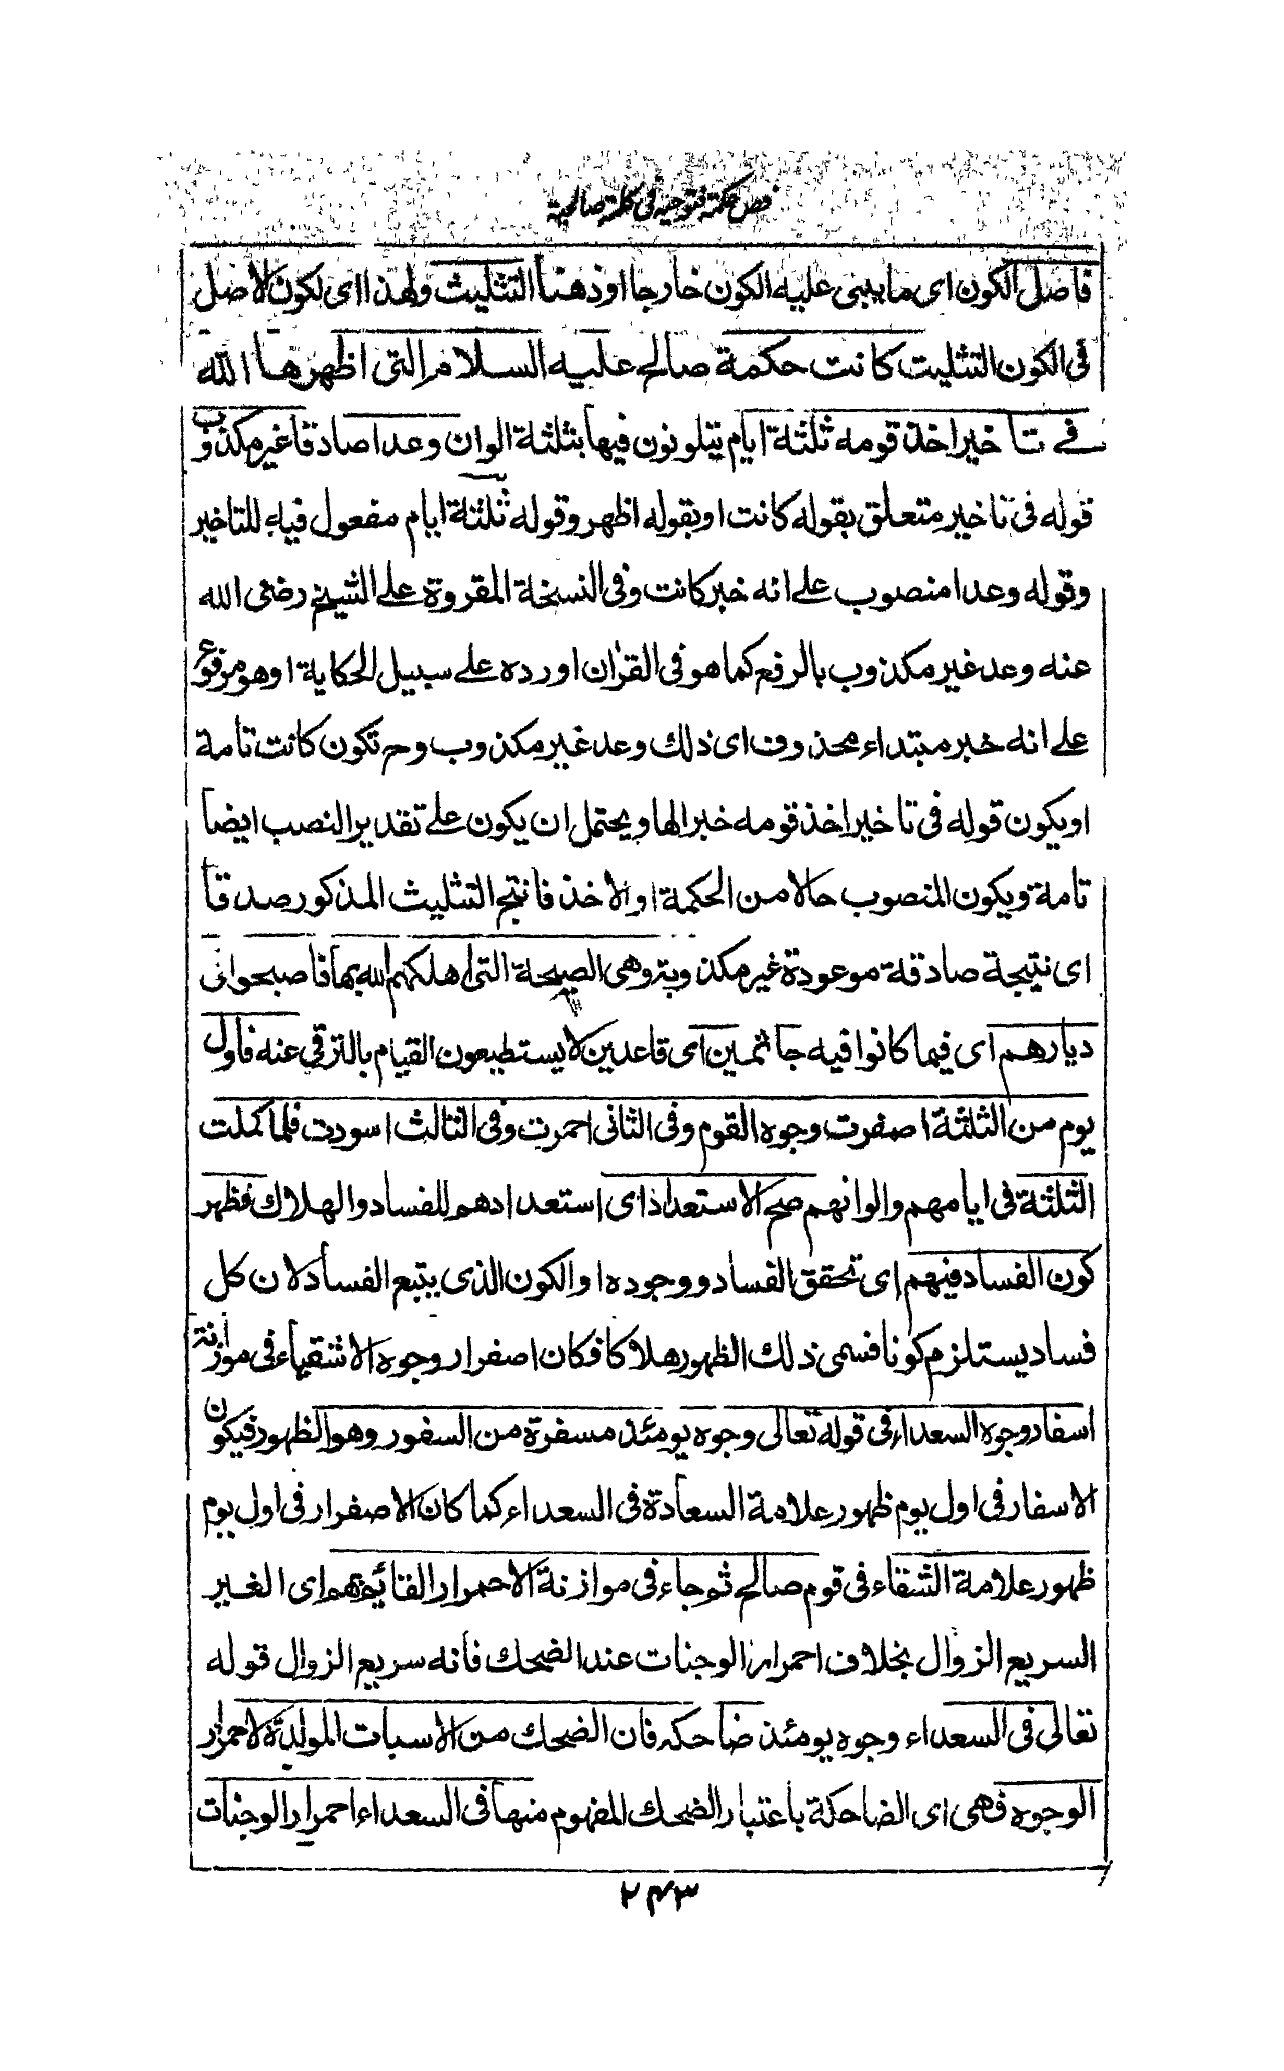 فص حكمة فتوحية فى كلمة صالحية
فاصل الكون اى ما يبنى عليه الكون خارجا او ذهنا التثليث ولهذا اى لكون الاصل
فى الكون التثليث كانت حكمة صالح عليه السلام التى اظهرها الله
فے تاخير اخذ قومه ثلثة ايام يتلونون فيها بثلثة الوان وعدا صادقا غير مكذوب
قوله فى تاخير متعلق بقوله كانت او بقوله اظهر وقوله ثلثة ايام مفعول فيه للتاخير
وقوله وعدا منصوب علے انه خبر كانت وفى النسخة المقروة علے الشيخ رضى الله
عنه وعد غير مكذوب بالرفع كما هو فى القران اورده علے سبيل الحكاية او هو مرفوع
علے انه خبر مبتداء محذوف اى ذلك وعد غير مكذوب وح تكون كانت تامة
او يكون قوله فى تاخير اخذ قومه خبرالها ويحتمل ان يكون علے تقدير النصب ايضا
تامة ويكون المنصوب حالا من الحكمة او الاخذ فانتج التثليث المذكور صدقا
اى نتيجة صادقة موعودة غير مكذوبة وهى الصيحة التى اهلكهم الله بها فاصبحوا فى
ديارهم اى فيما كانوا فيه جاثمين اى قاعدين لا يستطيعون القيام بالترقى عنه فاول
يوم من الثلثة اصفرت وجوه القوم وفى الثانى احمرت وفى الثالث اسودت فلما كملت
الثلثة فى ايامهم والوانهم صح الاستعداد اى استعدادهم للفساد والهلاك فظهر
كون الفساد فيهم اى تحقق الفساد ووجوده او الكون الذى يتبع الفساد لان كل
فساد يستلزم كونا فسمى ذلك الظهور هلاكا فكان اصفرار وجوه الاشقياء فى موازنة
اسفار وجوه السعداء فى قوله تعالى وجوه يومئذ مسفرة من السفور وهو الظهور فيكون
الاسفار فى اول يوم ظهور علامة السعادة فى السعداء كما كان الاصفرار فى اول يوم
ظهور علامة الشقاء فى قوم صالح ثم جاء فى موازنة الاحمرار القائم بهم اى الغير
السريع الزوال بخلاف احمرار الوجنات عند الضحك فانه سريع الزوال قوله
تعالى فى السعداء وجوه يومئذ ضاحكة فان الضحك من الاسباب المولدة لاحمرار
الوجوه فهى اى الضاحكة باعتبار الضحك المفهوم منها فى السعداء احمرار الوجنات
۲۴۳